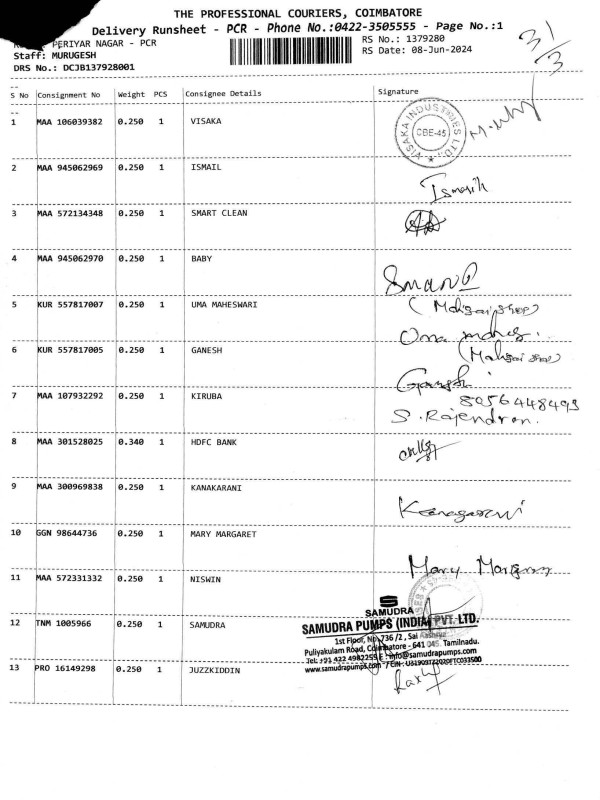 THE PROFESSIONAL COURIERS, COIMBATORE
Delivery Runsheet - PCR - Phone No.:0422-3505555 - Page No.:1
PERIYAR NAGAR - PCR
RS No.: 1379280
Staff: MURUGESH
RS Date: 08-Jun-2024
DRS No.: DCJB137928001
31/3
S No Consignment No Weight PCS Consignee Details Signature
1 MAA 106039382 0.250 1 VISAKA
VISAKA INDUSTRIES LTD. CBE-45
2 MAA 945062969 0.250 1 ISMAIL
3 MAA 572134348 0.250 1 SMART CLEAN
4 MAA 945062970 0.250 1 BABY
5 KUR 557817007 0.250 1 UMA MAHESWARI
6 KUR 557817005 0.250 1 GANESH
7 MAA 107932292 0.250 1 KIRUBA
8056448493
S. Rajendran.
8 MAA 301528025 0.340 1 HDFC BANK
9 MAA 300969838 0.250 1 KANAKARANI
10 GGN 98644736 0.250 1 MARY MARGARET
Mary
11 MAA 572331332 0.250 1 NISWIN
12 TNM 1005966 0.250 1 SAMUDRA
SAMUDRA
SAMUDRA PUMPS (INDIA) PVT. LTD.
1st Floor, No. 736 /2, Sai
Puliyakulam Road, Coimbatore - 641 045. Tamilnadu.
Tel: +91 422 E : info@samudrapumps.com
www.samudrapumps.com / CIN:
13 PRO 16149298 0.250 1 JUZZKIDDIN